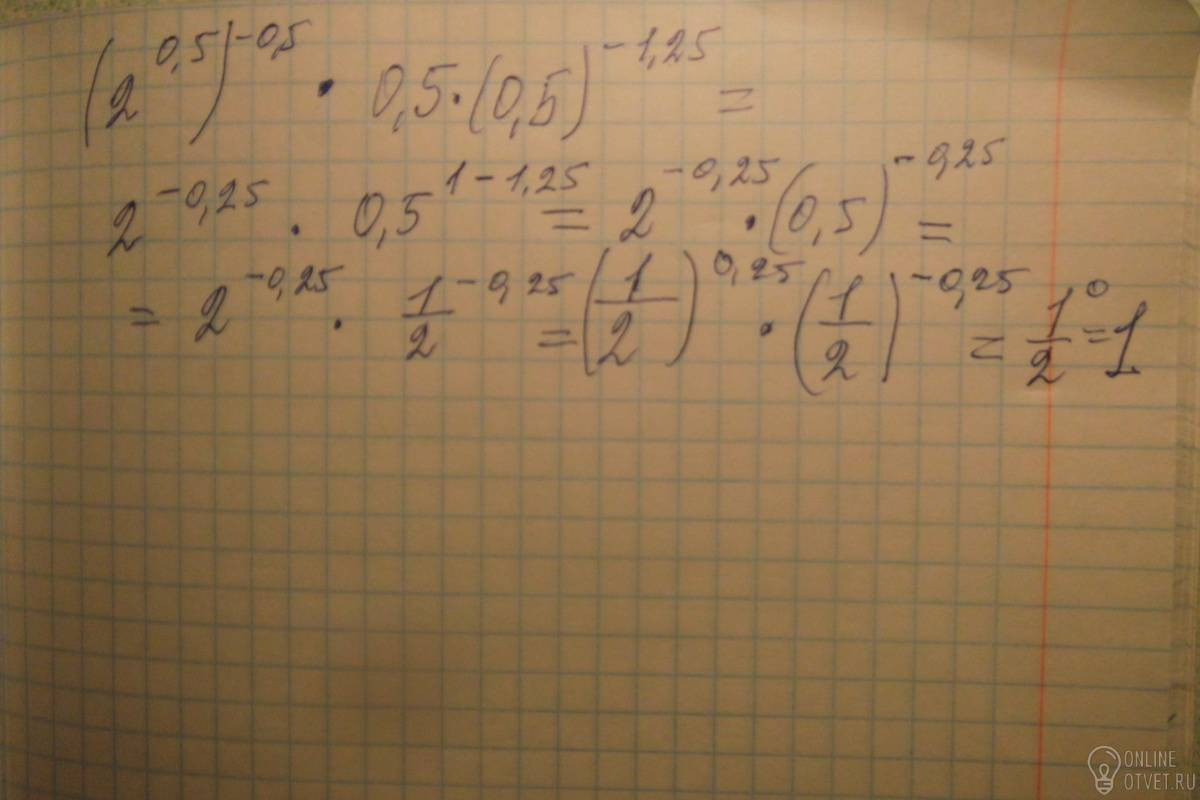 (2^0,5)^-0,5 · 0,5·(0,5)^-1,25 =
2^-0,25 · 0,5^1-1,25 = 2^-0,25 · (0,5)^-0,25 =
= 2^-0,25 · 1/2^-0,25 = (1/2)^0,25 · (1/2)^-0,25 = 1/2^0 = 1
ONLINE
OTVET.RU